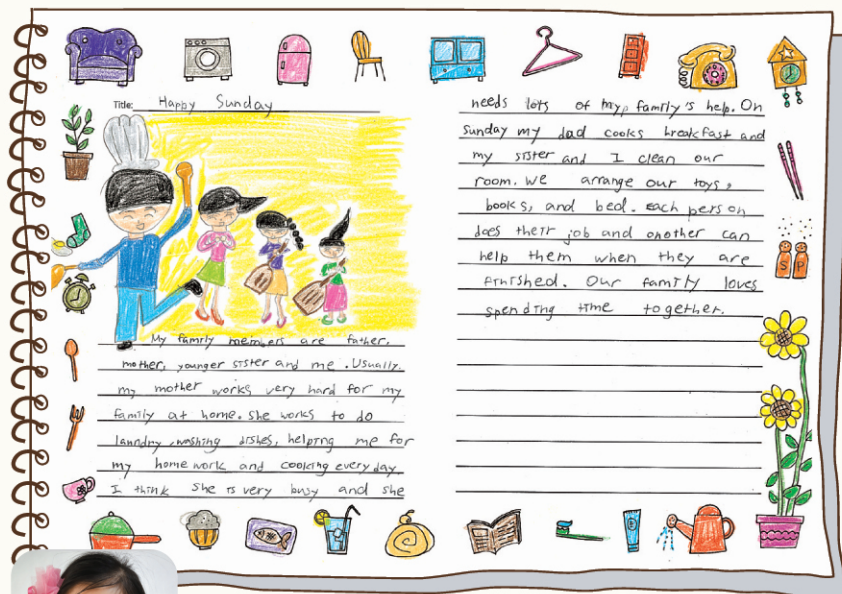 Title: Happy Sunday
My family members are father,
mother, younger sister and me. Usually,
my mother works very hard for my
family at home. She works to do
laundry, washing dishes, helping me for
my homework and cooking every day.
I think she is very busy and she
needs lots of my family's help. On
sunday my dad cooks breakfast and
my sister and I clean our
room. We arrange our toys,
books, and bed. Each person
does their job and another can
help them when they are
finished. Our family loves
spending time together.
S P